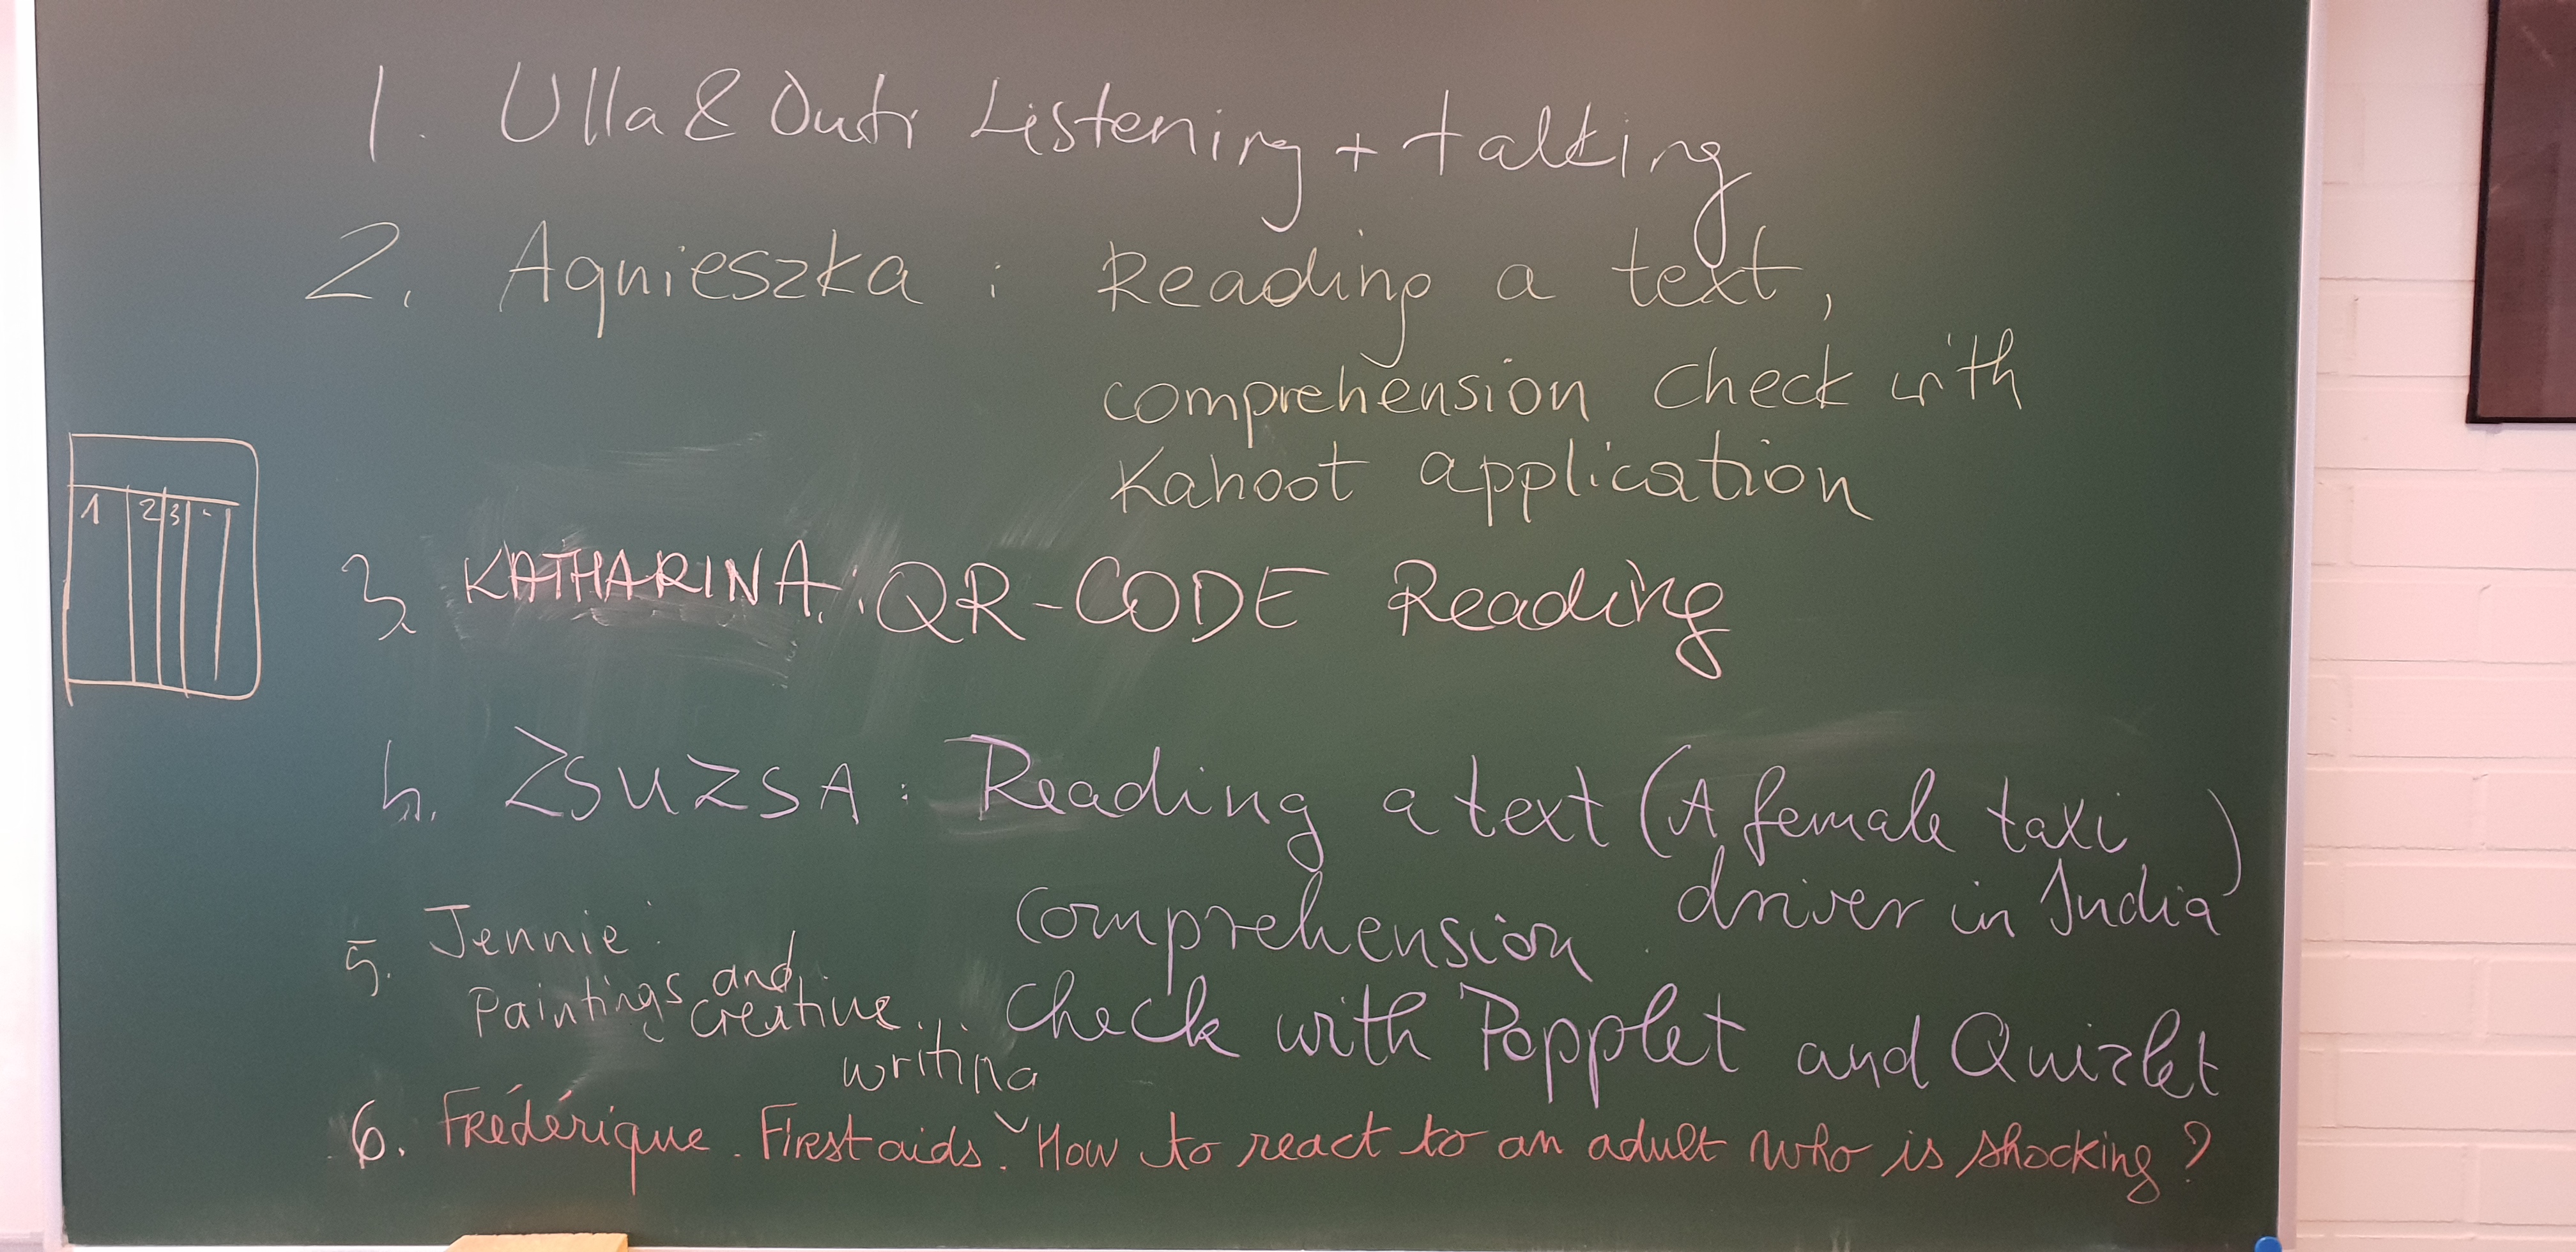 1. Ulla & Outi Listening + talking
2. Agnieszka : Reading a text,
comprehension check with
Kahoot application
1 2 3
3. KATHARINA: QR-CODE Reading
4. ZSUZSA: Reading a text (A female taxi
driver in India)
comprehension
check with Popplet and Quizlet
5. Jennie:
Paintings and
creative...
writing
6. Frédérique. First aids. How to react to an adult who is shocking?